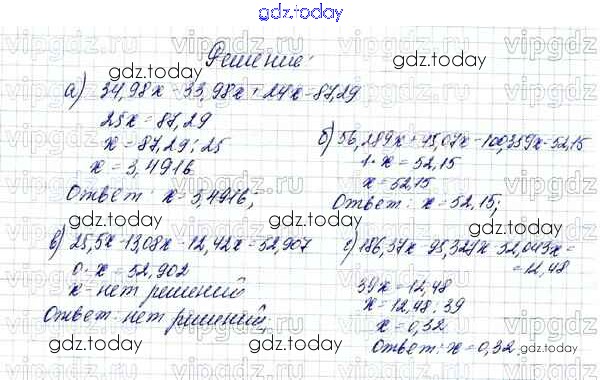 gdz.today
Решение:
а) 34,98x - 33,98x + 24x = 87,29
25x = 87,29
x = 87,29 : 25
x = 3,4916
Ответ: x = 3,4916;
б) 56,289x + 45,07x - 100,359x = 52,15
1 · x = 52,15
x = 52,15
Ответ: x = 52,15;
в) 25,5x - 13,08x - 12,42x = 52,907
0 · x = 52,902
x - нет решений
Ответ: нет решений;
г) 186,37x - 95,327x - 52,043x =
= 12,48
39x = 12,48
x = 12,48 : 39
x = 0,32
Ответ: x = 0,32
gdz.today
gdz.today
gdz.today
gdz.today
gdz.today
gdz.today
gdz.today
gdz.today
vipgdz.ru